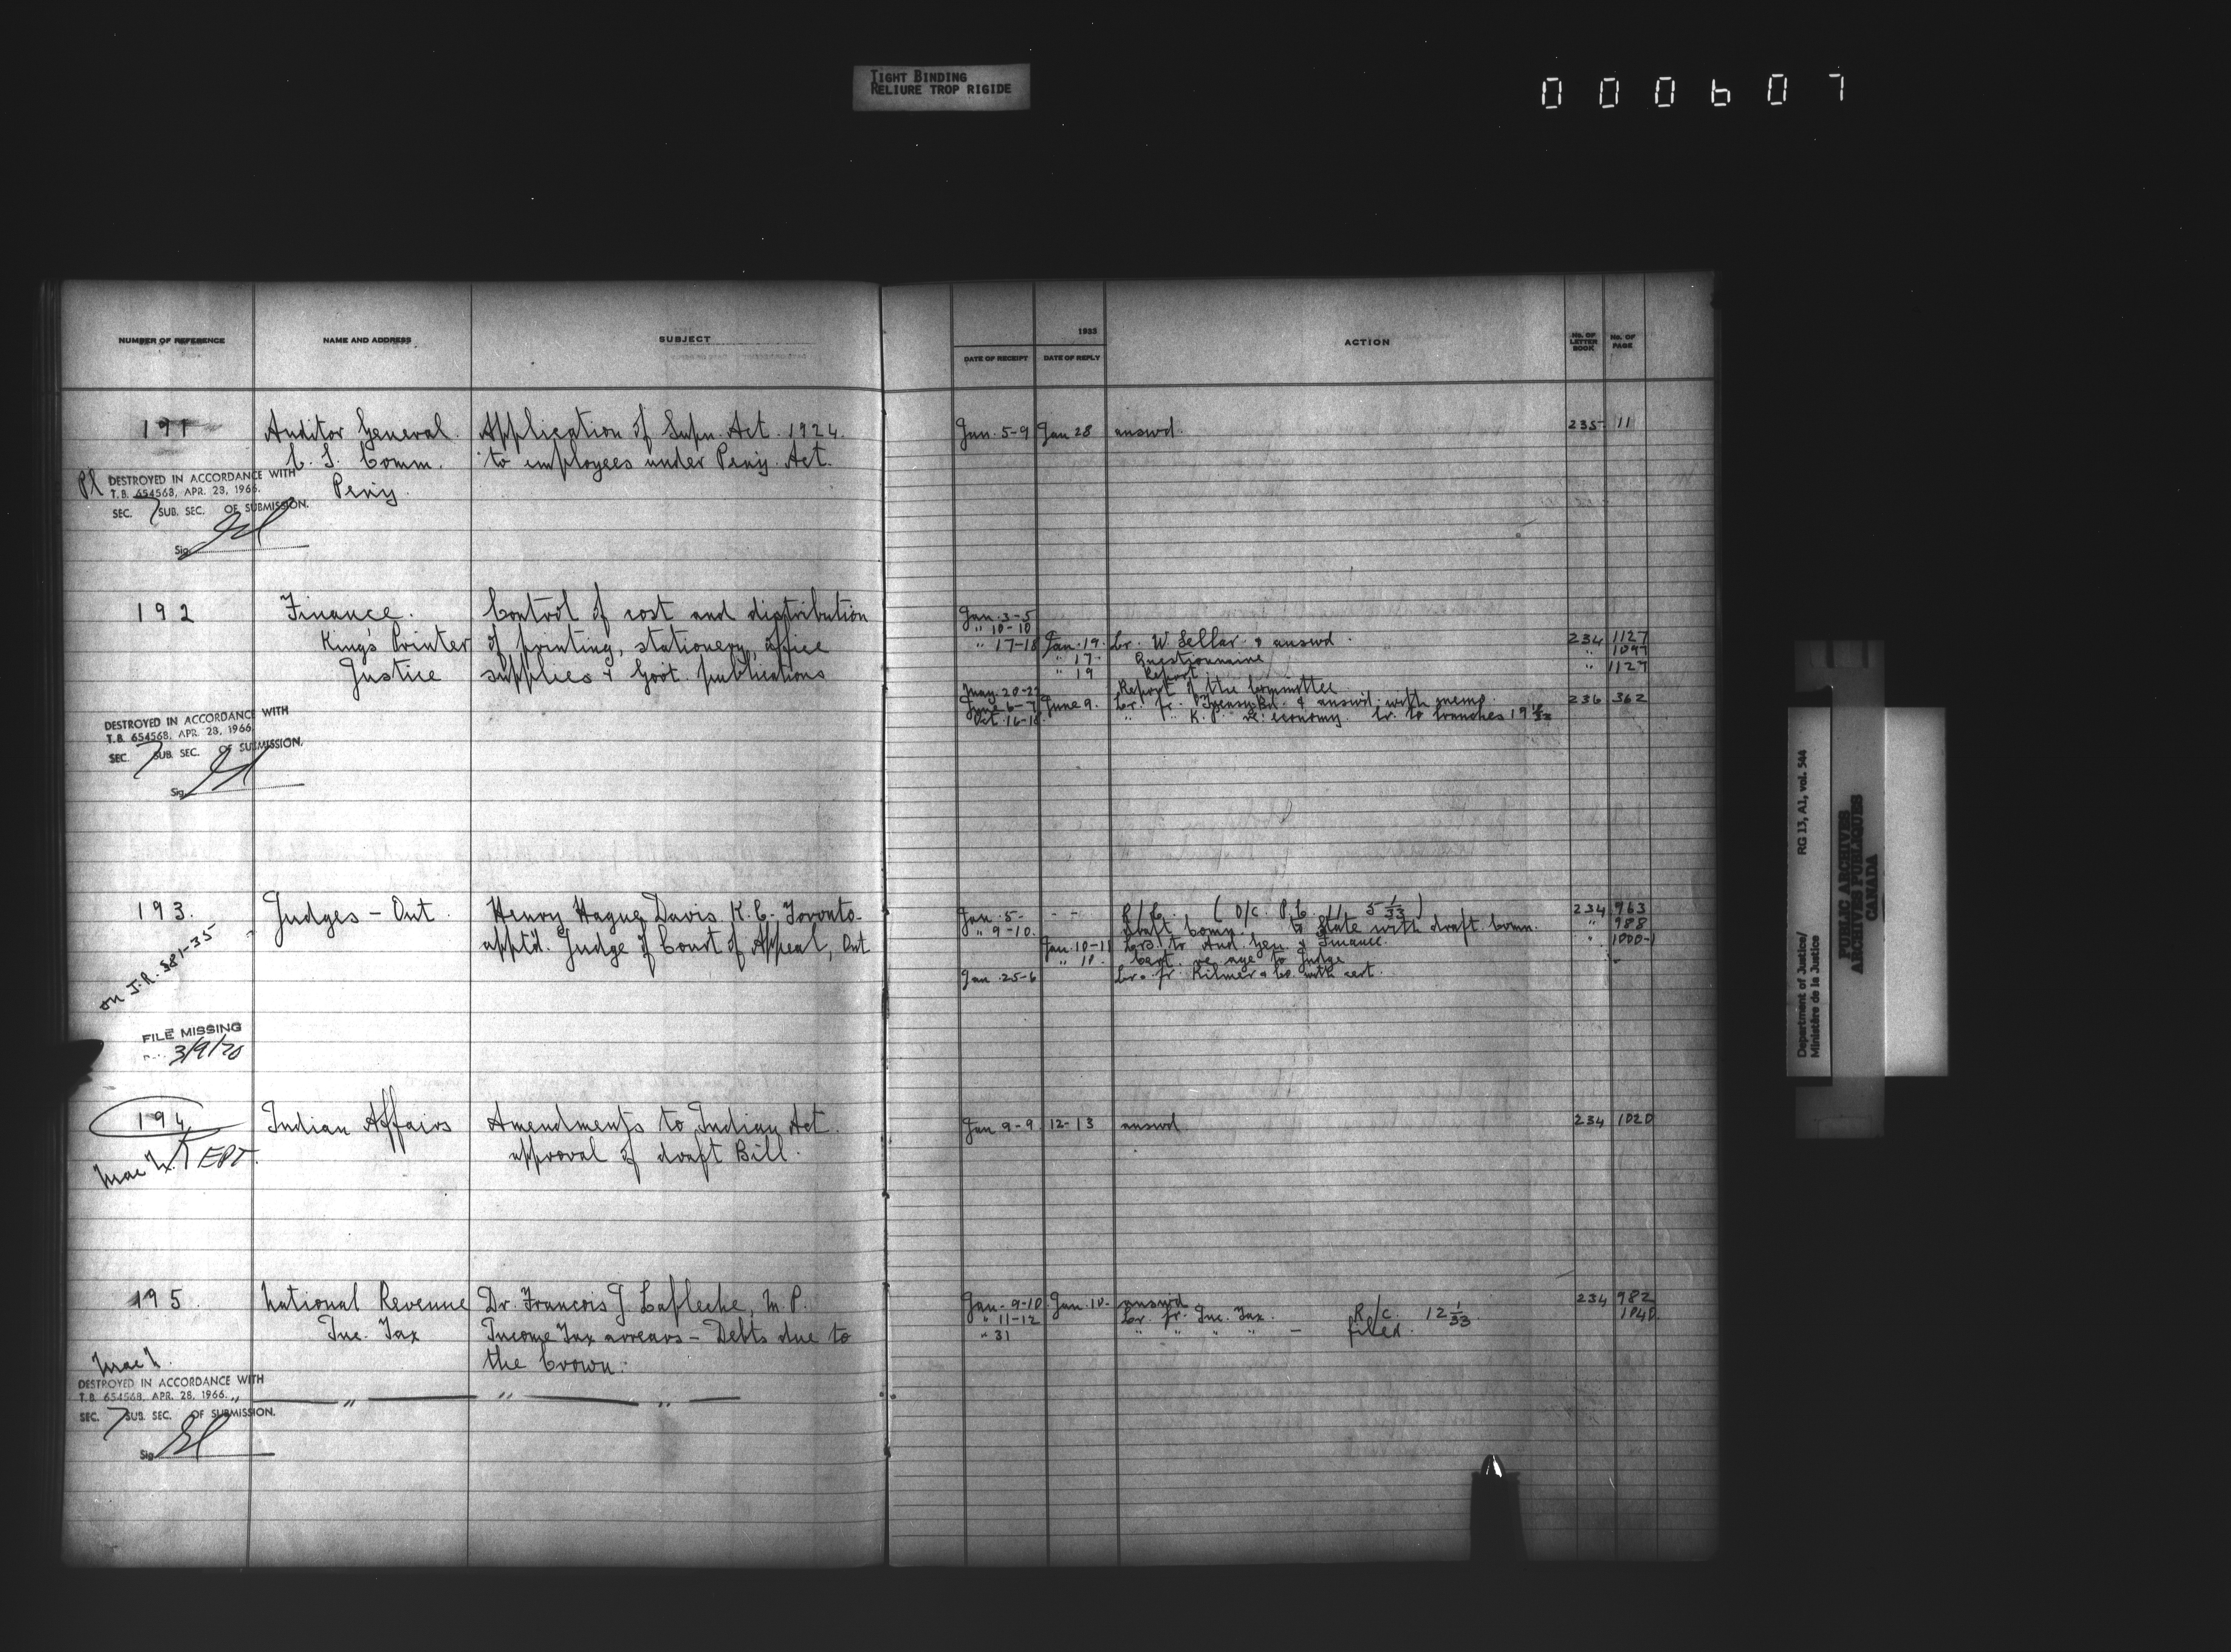 TIGHT BINDING
RELIURE TROP RIGIDE
000607
NUMBER OF REFERENCE NAME AND ADDRESS SUBJECT
1933
DATE OF RECEIPT DATE OF REPLY ACTION No. OF LETTER BOOK No. OF PAGE
191 Auditor General. Application of Supn. Act. 1924 Jan. 5-9 Jan 28 answd. 235 11
C. S. Comm. to employees under Peny. Act.
Peny.
Pl DESTROYED IN ACCORDANCE WITH
T.B. 654568, APR. 28, 1966.
SEC. 7 SUB. SEC. OF SUBMISSION.
Sig.
192 Finance. Control of cost and distribution Jan. 3-5
" 10-10
King's Printer of printing, stationery, office " 17-18 Jan. 19. Lr. W. Sellar & answd. 234 1127
" 17. Questionnaire " 1097
Justice supplies & Govt. publications " 19 Report " 1127
May. 20-22 Report of the Committee
June 6-7 June 9. Lr. fr. Treasury Bd. & answd. with memo. 236 362
Oct. 16-18 " " K. P. re. economy. Lr. to branches 19 10/33
DESTROYED IN ACCORDANCE WITH
T.B. 654568, APR. 28, 1966
SEC. 7 SUB. SEC. OF SUBMISSION.
Sig.
193. Judges - Ont. Henry Hague Davis K.C. Toronto- Jan. 5- - - R/C. (O/C. P.C. 11 5 1/33) 234 963
apptd. Judge of Court of Appeal, Ont " 9-10. Draft Comn. to State with draft Comn. " 988
Jan. 10-11 Lrs. to Aud. Gen. & Finance. " 1000-1
" 10. Cert. re age to Judge "
Jan. 25-6 Lr. fr. Kilmer & Co. with cert.
on J.R. 381-35
FILE MISSING
3/9/70
194 Indian Affairs Amendments to Indian Act. Jan 9-9 12-13 answd 234 1020
approval of draft Bill.
KEPT.
195. National Revenue Dr. Francois J. Lafleche, M.P. Jan. 9-10. Jan. 10. answd 234 982
Inc. Tax Income Tax arrears - Debts due to " 11-12 Lr. fr. Inc. Tax. R/C. 12 1/33 1040
" 31 " " " " - filed.
the Crown.
DESTROYED IN ACCORDANCE WITH
T.B. 654568, APR. 28, 1966.
SEC. 7 SUB. SEC. OF SUBMISSION.
Sig.
Department of Justice/
Ministère de la Justice
RG 13, A1, vol. 544
PUBLIC ARCHIVES
ARCHIVES PUBLIQUES
CANADA